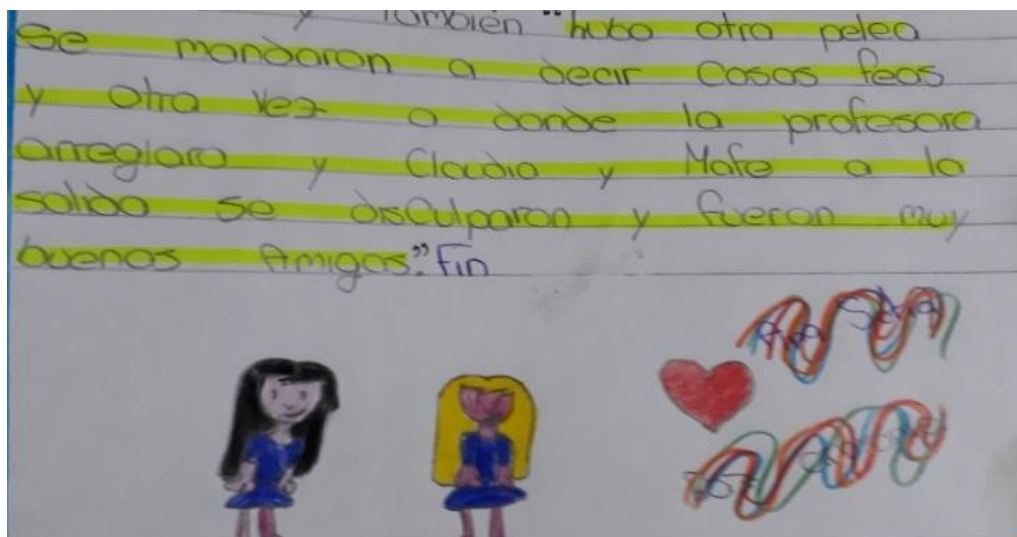 y también "hubo otra pelea
Se mandaron a decir cosas feas
y otra vez a donde la profesora
arreglaro y Claudia y Mafe a la
salida se disculparon y fueron muy
buenas Amigas." Fin